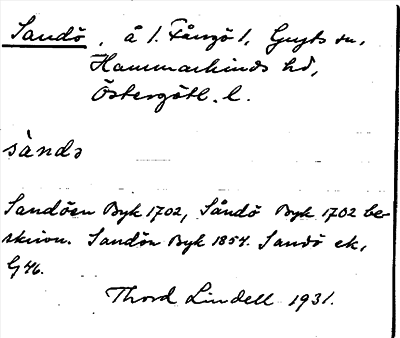 Sandö, å l. Fångö 1, Gryts sn,
Hammarkinds hd,
Östergötl. l.
sàndə
Sandöen Byk 1702, Såndö Byk 1702 be-
skrivn. Sandön Byk 1854. Sandö ek,
G 46.
Thord Lindell 1931.